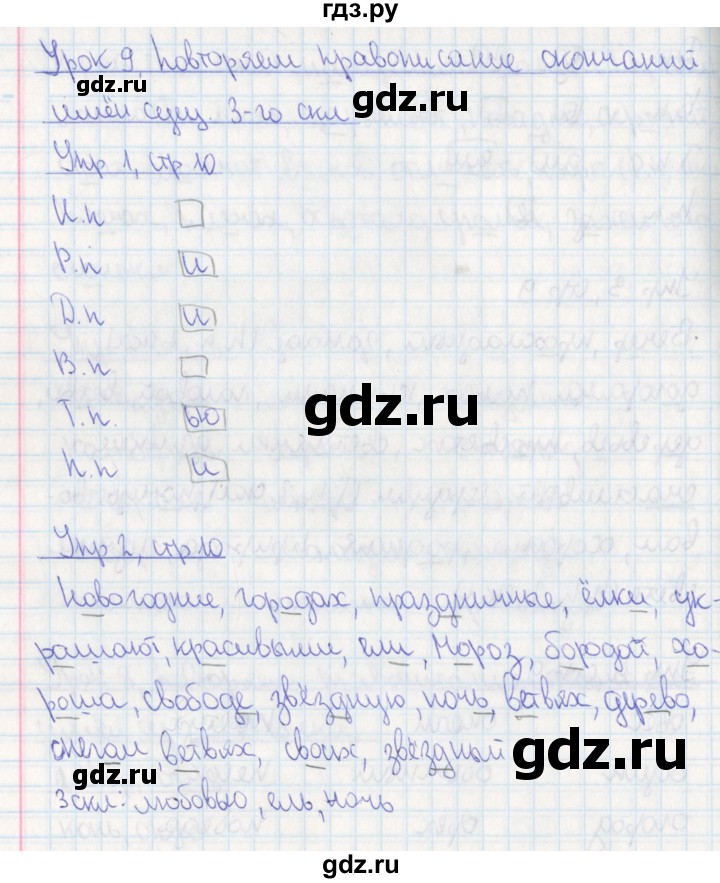 гдз.ру
Урок 9 Повторяем правописание окончаний
gdz.ru gdz.ru
имён сущ. 3-го скл
Упр 1, стр 10
И.п
Р.п и
Д.п и
В.п
gdz.ru
Т.п. ью
П.п и
gdz.ru
Упр 2, стр 10
Новогодние, городах, праздничные, ёлки, ук-
рашают, красивыми, ели, Мороз, бородой, хо-
роша, свободе, звёздную, ночь, ветвях, дерево,
gdz.ru
снегом, ветвях, своих, звёздный
gdz.ru
3 скл: любовью, ель, ночь
gdz.ru